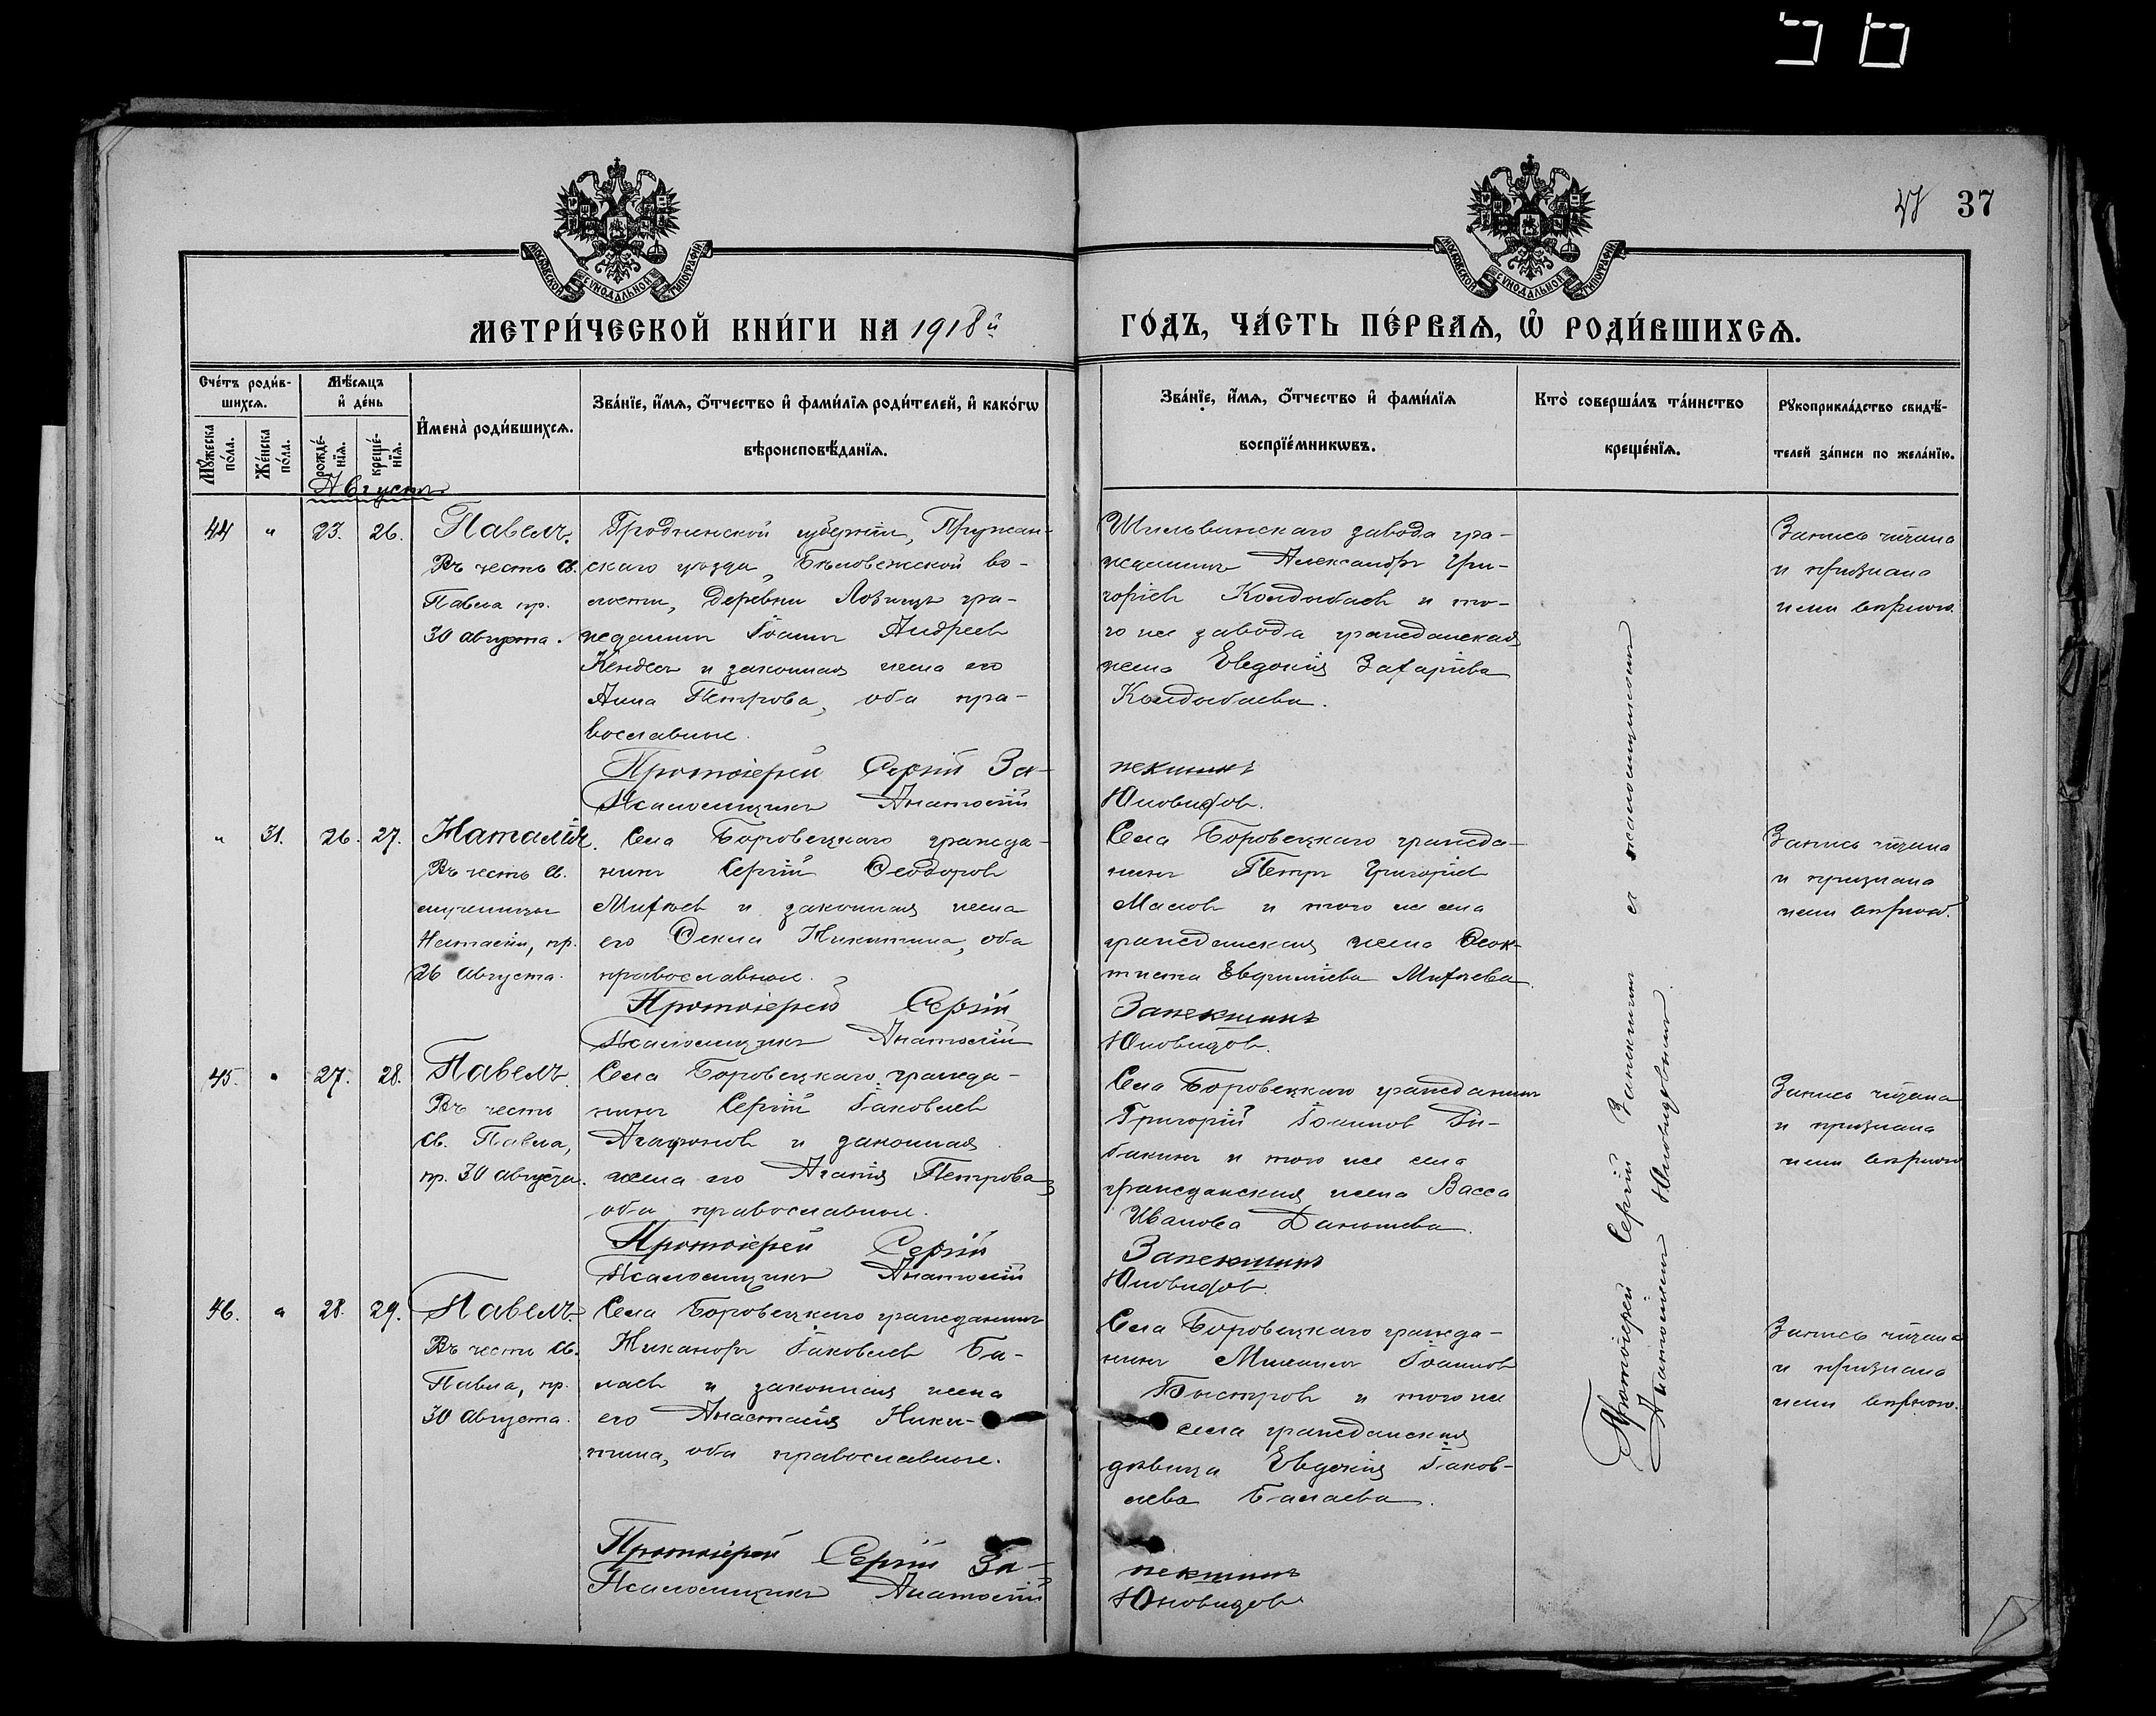 37
МОСКОВСКОЙ СѴНОДАЛЬНОЙ ТИПОГРАФІИ
МОСКОВСКОЙ СѴНОДАЛЬНОЙ ТИПОГРАФІИ
МЕТРИ́ЧЕСКОЙ КНИ́ГИ НА 1918й
ГО́ДЪ, ЧА́СТЬ ПЕ́РВАѦ, Ѡ҆ РОДИ́ВШИХСѦ.
Сче́тъ роди́в-
шихсѧ.
Мѣ́сѧцъ
и҆ де́нь
Мꙋ́жеска
по́ла.
Же́нска
по́ла.
рожде́-
нїѧ.
креще́-
нїѧ.
И҆мена̀ роди́вшихсѧ.
Зва́нїе, и҆́мѧ, ѻ҆́тчество и҆ фами́лїѧ роди́телей, и҆ како́гѡ
вѣроисповѣ́данїѧ.
Зва́нїе, и҆́мѧ, ѻ҆́тчество и҆ фами́лїѧ
воспрїе́мникѡвъ.
Кто̀ соверша́лъ та́инство
креще́нїѧ.
Рꙋкоприкла́дство свидѣ́-
телей за́писи по жела́нїю.
Августъ
44 " 23. 26. Павелъ.
Въ честь Св.
Павла пр.
30 августа.
Гродненской губерніи, Пружан-
скаго уѣзда, Бѣловежской во-
лости, деревни Лозицъ гра-
жданинъ Іоаннъ Андреевъ
и законная жена его
Анна Петрова, оба пра-
вославные.
Протоіерей Сергій За-
Псаломщикъ Анатолій
Шильвинскаго завода гра-
жданинъ Александръ Гри-
горіевъ Колдыбаевъ и то-
го же завода гражданская
жена Евдокія Захаріева
Колдыбаева.
пекинъ
Юновидов.
Запись читана
и признана
нами вѣрною.
" 31. 26. 27. Наталія.
Въ честь Св.
мученицы
Наталіи, пр.
26 августа.
Села Боровецкаго гражда-
нинъ Сергій Ѳеодоровъ
Михѣевъ и законная жена
его Ѳекла Никитина, оба
православные.
Протоіерей Сергій
Псаломщикъ Анатолій
Села Боровецкаго гражда-
нинъ Петръ Григоріевъ
Масловъ и того же села
гражданская жена Ѳеок-
тиста Михѣева.
Юновидов.
Запись читана
и признана
нами вѣрною.
45. " 27. 28. Павелъ.
Въ честь
Св. Павла,
пр. 30 августа.
Села Боровецкаго гражда-
нинъ Сергій Іаковлевъ
Агафоновъ и законная
жена его Агапія Петрова,
оба православные.
Протоіерей Сергій
Псаломщикъ Анатолій
Села Боровецкаго гражданинъ
Григорій Іоаннов
и того же села
гражданская жена Васса
Иванова Данишева.
Юновидов.
Запись читана
и признана
нами вѣрною
46. " 28. 29. Павелъ.
Въ честь Св.
Павла, пр.
30 августа.
Села Боровецкаго гражданинъ
Никаноръ Іаковлевъ Ба-
лаевъ и законная жена
его Анастасія Ники-
тина, оба православные.
Протоіерей Сергій За-
Псаломщикъ Анатолій
Села Боровецкаго гражда-
нинъ Михаилъ Іоаннов
Быстровъ и того же
села гражданская
дѣвица Евдокія Іаков-
лева Балаева.
Юновидовъ
Запись читана
и признана
нами вѣрною.
Протоіерей Сергій съ псаломщикомъ
Анатоліемъ Юновидовымъ.